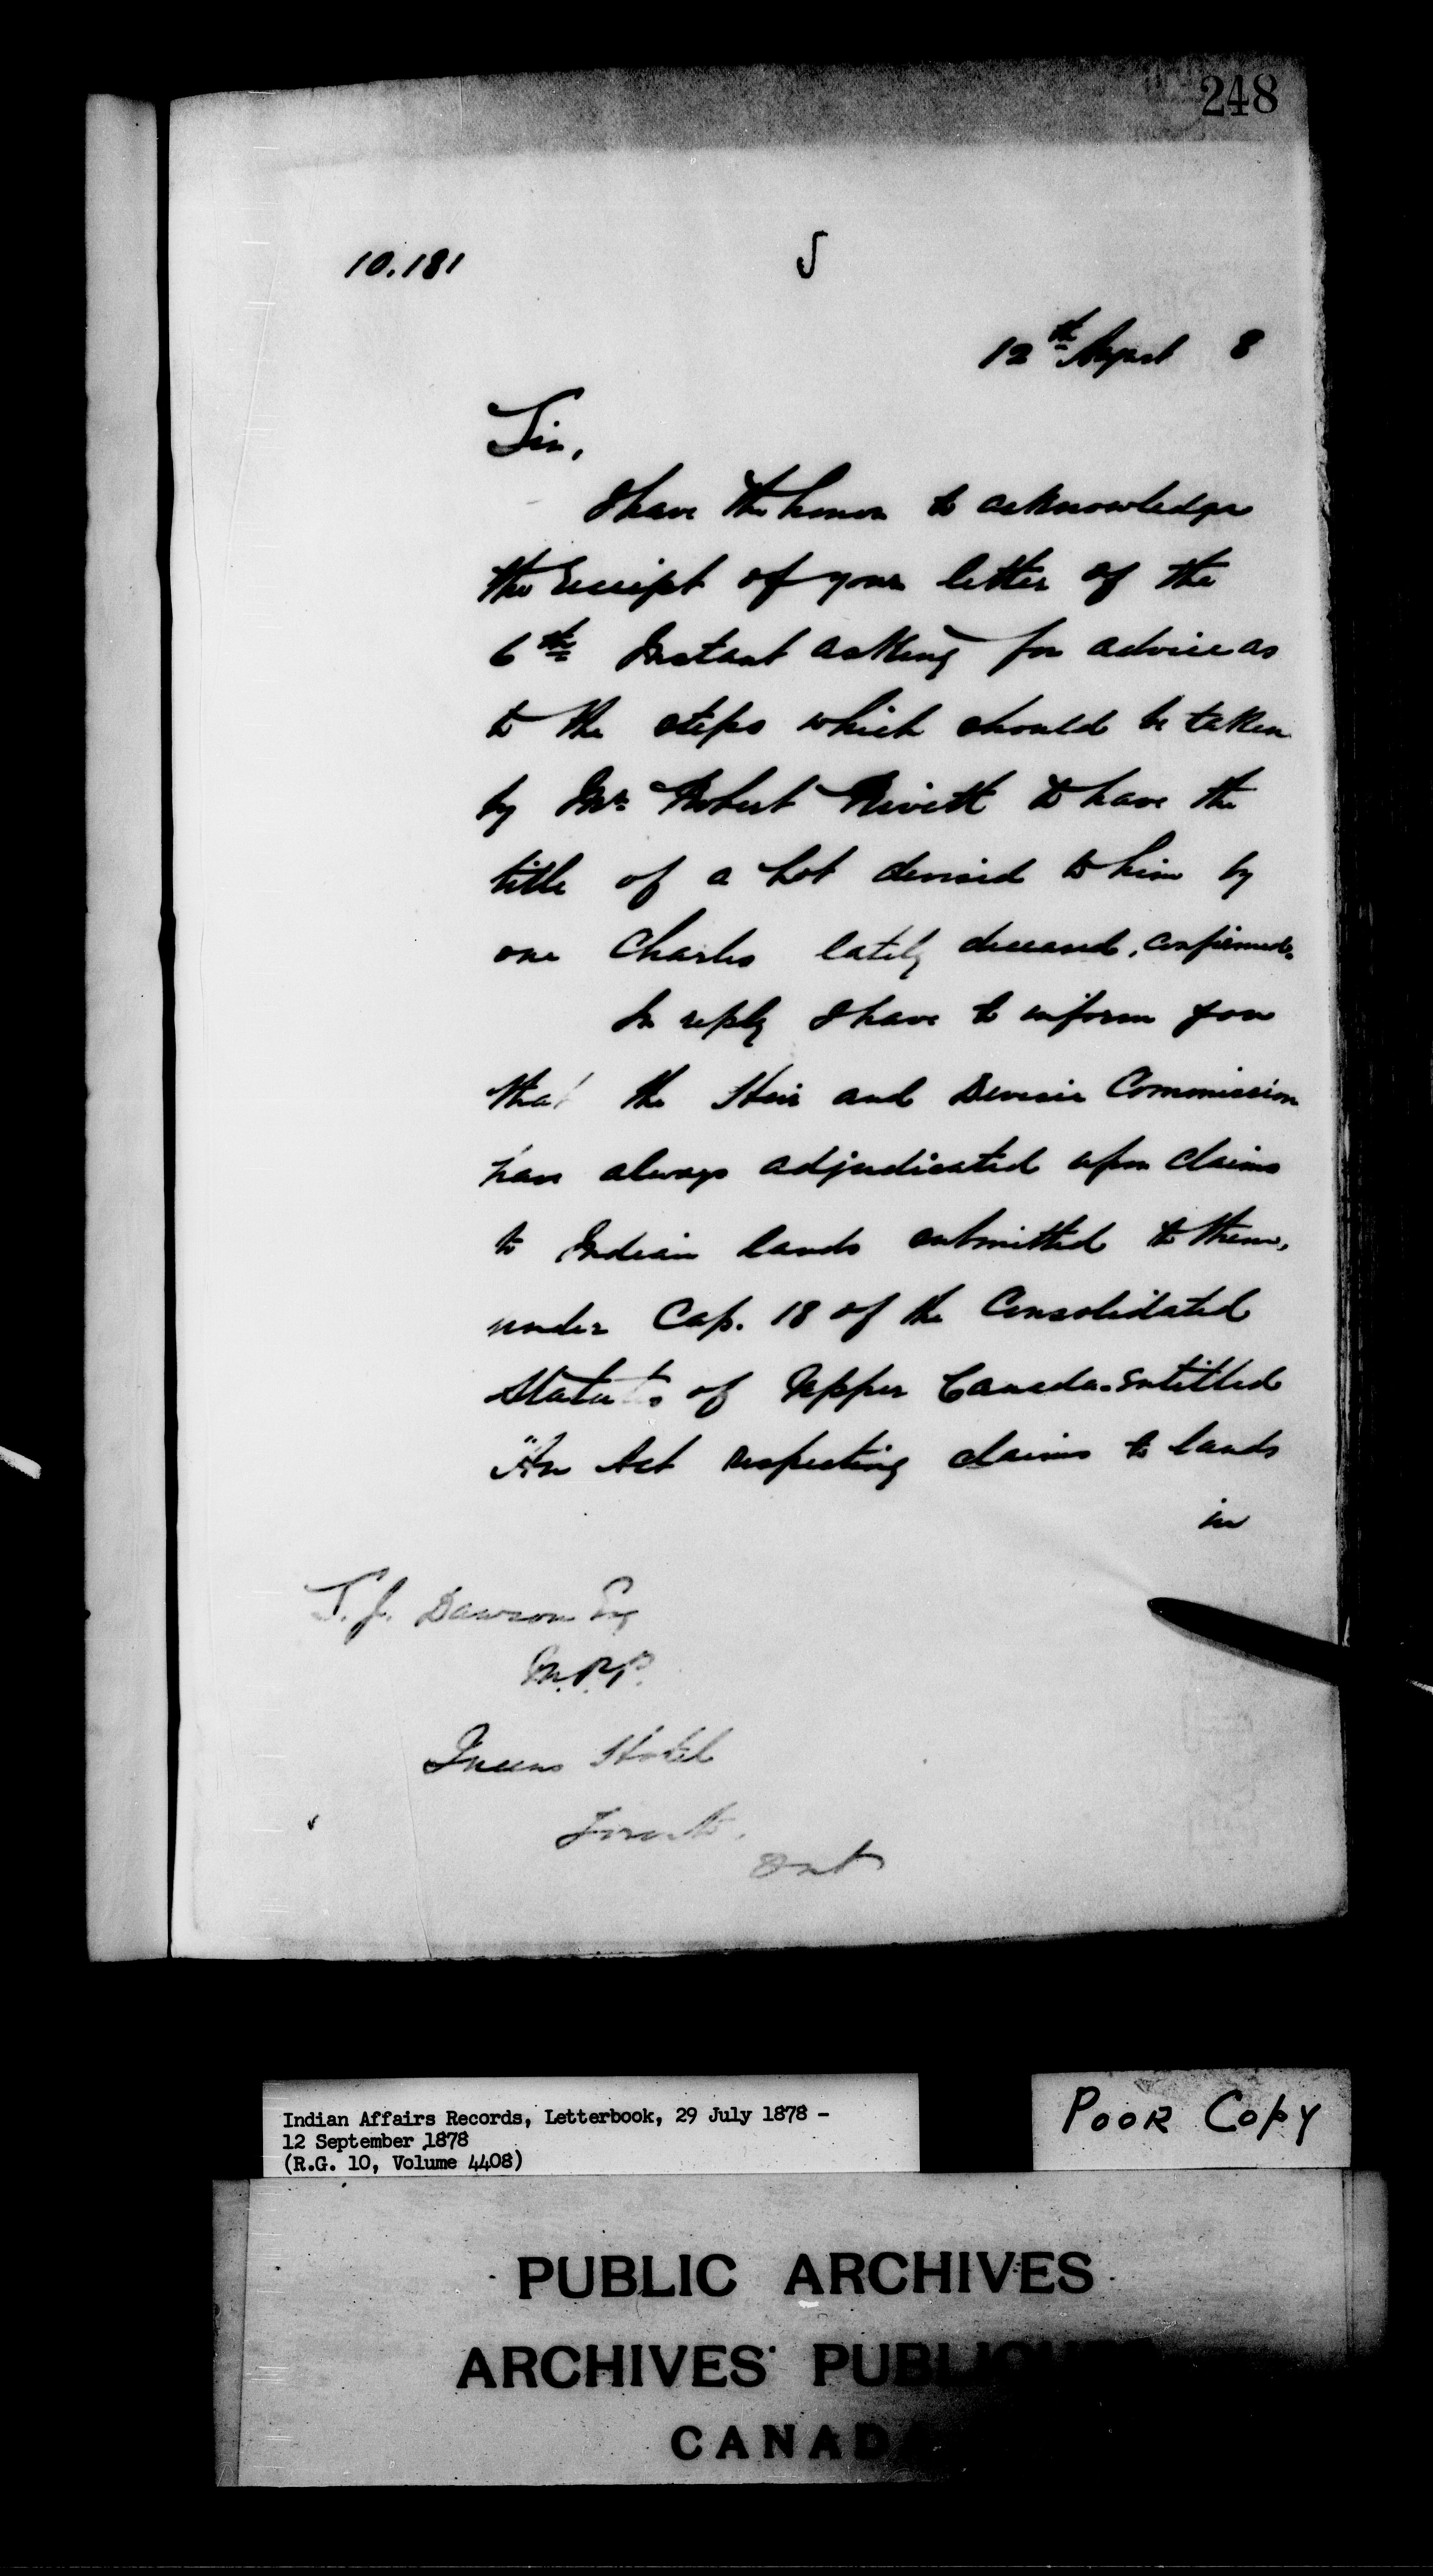 248
10.181
J
12th August 8
Sir,
I have the honor to acknowledge
the receipt of your letter of the
6th Instant asking for advice as
to the steps which should be taken
by Mr. Robert Rivett to have the
title of a Lot devised to him by
one Charles lately deceased, confirmed.
In reply I have to inform you
that the Heir and Devisee Commission
have always adjudicated upon claims
to Indian lands submitted to them,
under Cap. 18 of the Consolidated
Statutes of Upper Canada entitled
"An Act respecting claims to lands
in
T. J. Dawson Esq
M.P.P.
Queens Hotel
Toronto.
Ont
Indian Affairs Records, Letterbook, 29 July 1878 -
12 September 1878
(R.G. 10, Volume 4408)
POOR COPY
PUBLIC ARCHIVES
ARCHIVES PUBLIQUES
CANADA